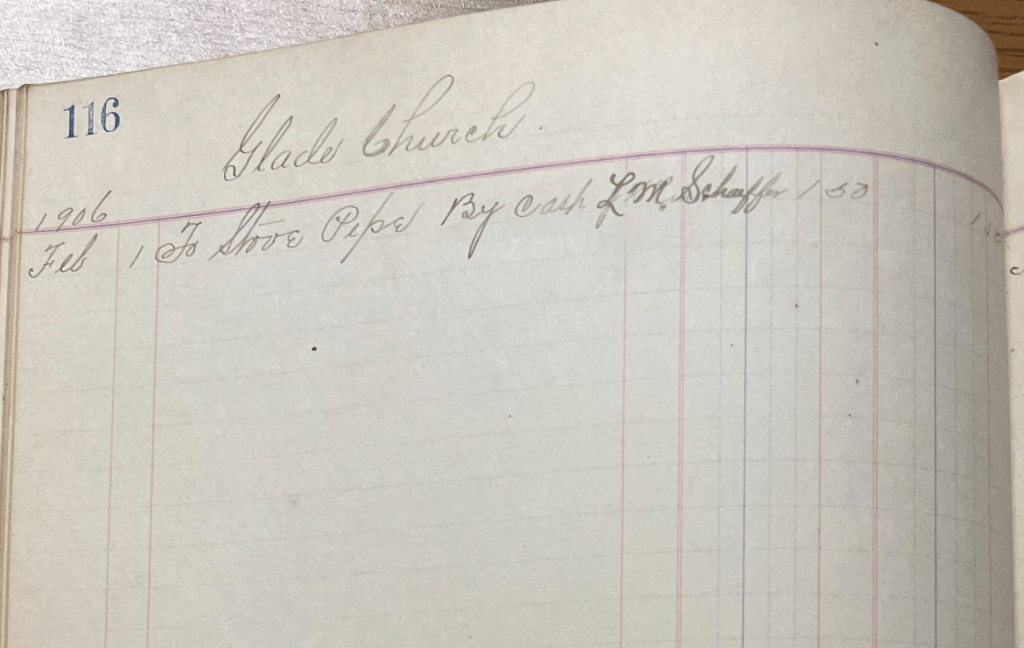 116
Glade Church.
1906
Feb 1 To Stove Pipe By Cash L M. Schaffer 1 50